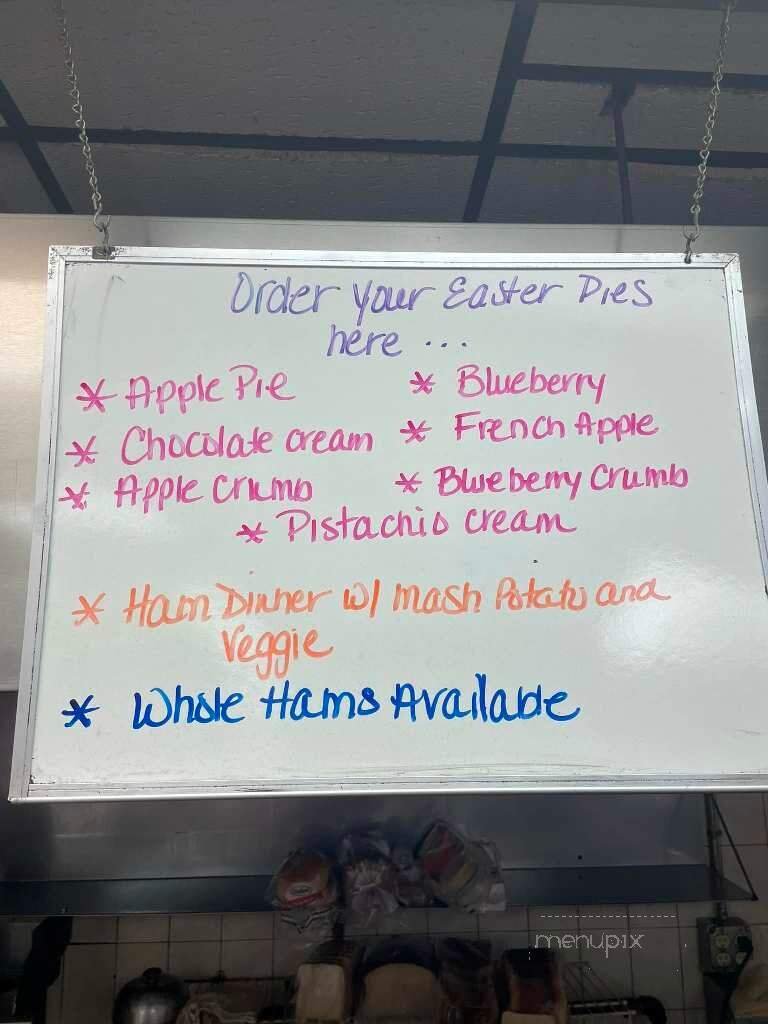 Order your Easter Pies
here ...
* Apple Pie
* Blueberry
* Chocolate cream
* French Apple
* Apple Crumb
* Blueberry Crumb
* Pistachio cream
* Ham Dinner w/ mash Potato and
Veggie
* Whole Hams Available
menupix